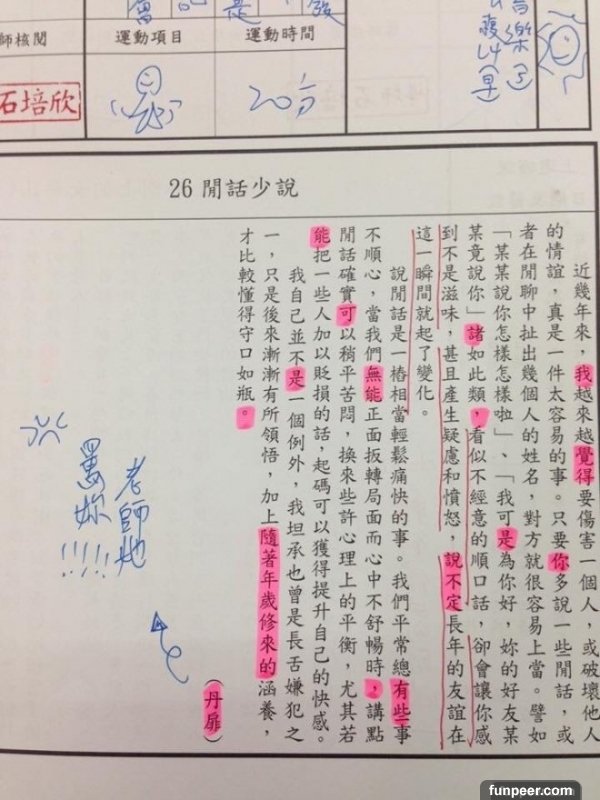 師核閱
運動項目
運動時間
石培欣
20分
26 閒話少說
近幾年來，我越來越覺得要傷害一個人，或破壞他人
的情誼，真是一件太容易的事。只要你多說一些閒話，或
者在閒聊中扯出幾個人的姓名，對方就很容易上當。譬如
「某某說你怎樣怎樣啦」、「我可是為你好，妳的好友某
某竟說你」諸如此類，看似不經意的順口話，卻會讓你感
到不是滋味，甚且產生疑慮和憤怒，說不定長年的友誼在
這一瞬間就起了變化。
說閒話是一樁相當輕鬆痛快的事。我們平常總有些事
不順心，當我們無能正面扳轉局面而心中不舒暢時，講點
閒話確實可以稍平苦悶，換來些許心理上的平衡，尤其若
能把一些人加以貶損的話，起碼可以獲得提升自己的快感。
我自己並不是一個例外，我坦承也曾是長舌嫌犯之
一，只是後來漸漸有所領悟，加上隨著年歲修來的涵養，
才比較懂得守口如瓶。
（丹扉）
老師她
罵妳
!!!!
funpeer.com